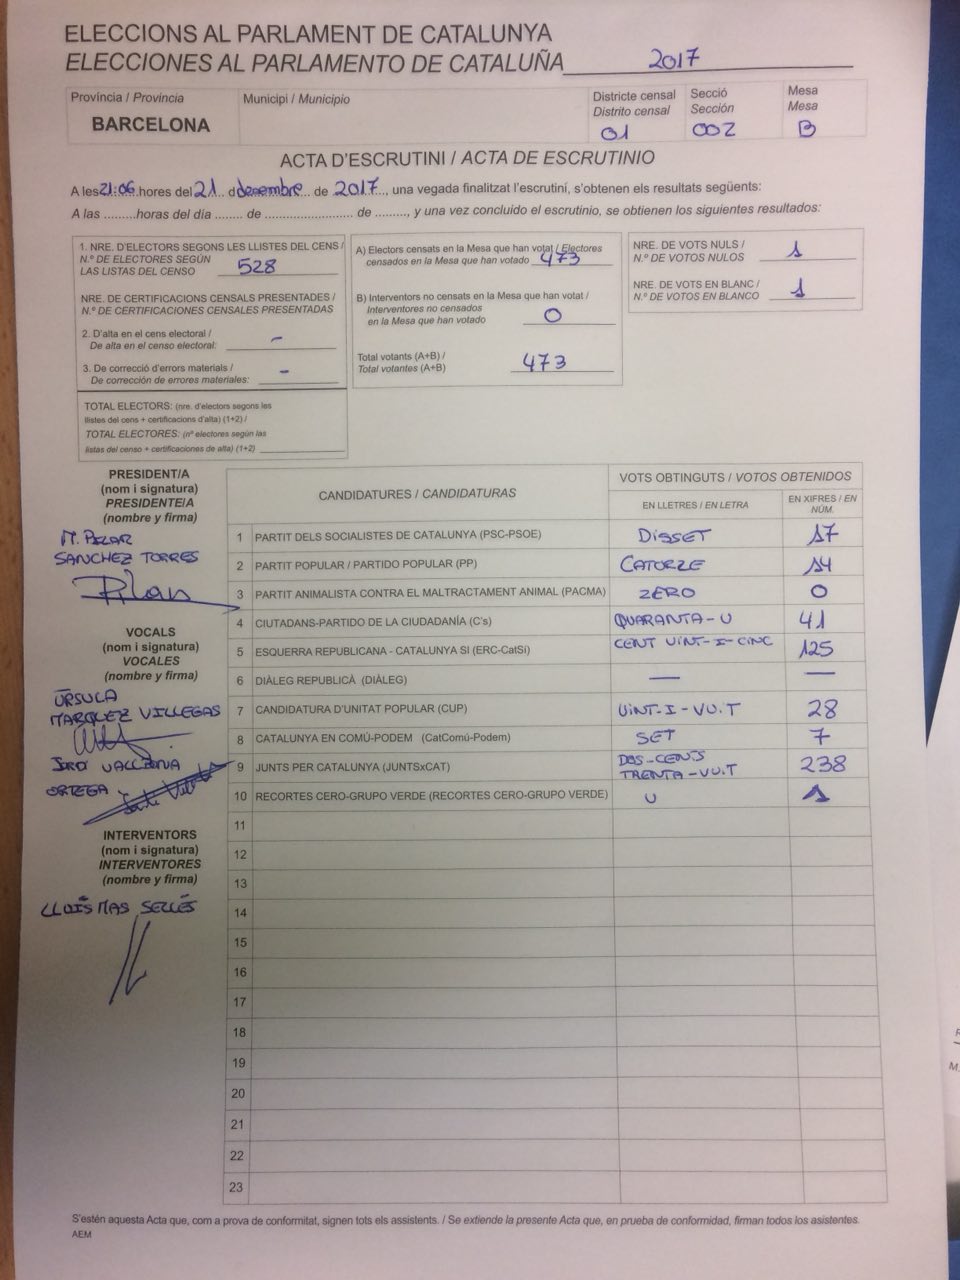 ELECCIONS AL PARLAMENT DE CATALUNYA
ELECCIONES AL PARLAMENTO DE CATALUÑA 2017
Província / Provincia
BARCELONA
Municipi / Municipio
Districte censal
Distrito censal
01
Secció
Sección
002
Mesa
Mesa
B
ACTA D'ESCRUTINI / ACTA DE ESCRUTINIO
A les 21:06 hores del 21 d desembre de 2017, una vegada finalitzat l'escrutini, s'obtenen els resultats següents:
A las .........horas del día ........ de ......................... de ........., y una vez concluido el escrutinio, se obtienen los siguientes resultados:
1. NRE. D'ELECTORS SEGONS LES LLISTES DEL CENS /
N.º DE ELECTORES SEGÚN
LAS LISTAS DEL CENSO 528
NRE. DE CERTIFICACIONS CENSALS PRESENTADES /
N.º DE CERTIFICACIONES CENSALES PRESENTADAS
2. D'alta en el cens electoral /
De alta en el censo electoral: -
3. De correcció d'errors materials /
De corrección de errores materiales: -
TOTAL ELECTORS: (nre. d'electors segons les
llistes del cens + certificacions d'alta) (1+2) /
TOTAL ELECTORES: (nº electores según las
listas del censo + certificaciones de alta) (1+2)
A) Electors censats en la Mesa que han votat / Electores
censados en la Mesa que han votado 473
B) Interventors no censats en la Mesa que han votat /
Interventores no censados
en la Mesa que han votado 0
Total votants (A+B) /
Total votantes (A+B) 473
NRE. DE VOTS NULS /
N.º DE VOTOS NULOS 1
NRE. DE VOTS EN BLANC /
N.º DE VOTOS EN BLANCO 1
PRESIDENT/A
(nom i signatura)
PRESIDENTE/A
(nombre y firma)
M. PILAR
SANCHEZ TORRES
Pilar
VOCALS
(nom i signatura)
VOCALES
(nombre y firma)
ÚRSULA
MARQUEZ VILLEGAS
JORDI VALLBONA
ORTEGA
INTERVENTORS
(nom i signatura)
INTERVENTORES
(nombre y firma)
LLUÍS MAS SELLÉS
CANDIDATURES / CANDIDATURAS
VOTS OBTINGUTS / VOTOS OBTENIDOS
EN LLETRES / EN LETRA
EN XIFRES / EN NÚM.
1 PARTIT DELS SOCIALISTES DE CATALUNYA (PSC-PSOE) DISSET 17
2 PARTIT POPULAR / PARTIDO POPULAR (PP) CATORZE 14
3 PARTIT ANIMALISTA CONTRA EL MALTRACTAMENT ANIMAL (PACMA) ZERO 0
4 CIUTADANS-PARTIDO DE LA CIUDADANÍA (C's) QUARANTA-U 41
5 ESQUERRA REPUBLICANA - CATALUNYA SI (ERC-CatSí) CENT VINT-I-CINC 125
6 DIÀLEG REPUBLICÀ (DIÀLEG) — —
7 CANDIDATURA D'UNITAT POPULAR (CUP) VINT-I-VUIT 28
8 CATALUNYA EN COMÚ-PODEM (CatComú-Podem) SET 7
9 JUNTS PER CATALUNYA (JUNTSxCAT) DOS-CENTS TRENTA-VUIT 238
10 RECORTES CERO-GRUPO VERDE (RECORTES CERO-GRUPO VERDE) U 1
11
12
13
14
15
16
17
18
19
20
21
22
23
S'estén aquesta Acta que, com a prova de conformitat, signen tots els assistents. / Se extiende la presente Acta que, en prueba de conformidad, firman todos los asistentes.
AEM